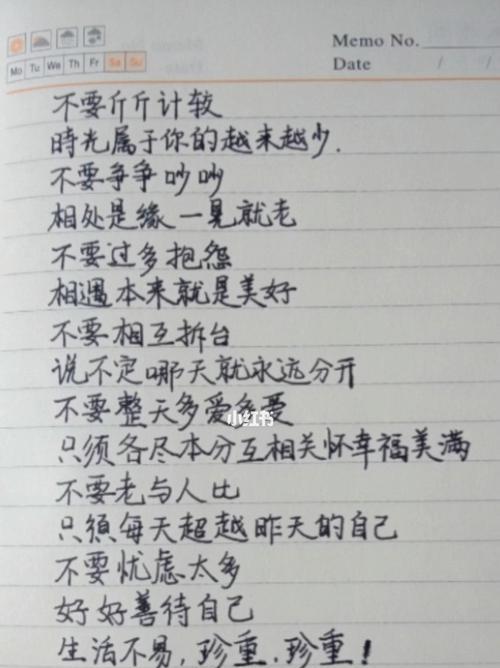 Memo No.
Mo Tu We Th Fr Sa Su
Date / /
不要斤斤计较
時光属于你的越来越少.
不要争争吵吵
相处是缘一晃就老
不要过多抱怨
相遇本来就是美好
不要相互拆台
说不定哪天就永远分开
不要整天多爱
小红书
只须各尽本分互相关怀幸福美满
不要老与人比
只须每天超越昨天的自己
不要忧虑太多
好好善待自己
生活不易,珍重.珍重!